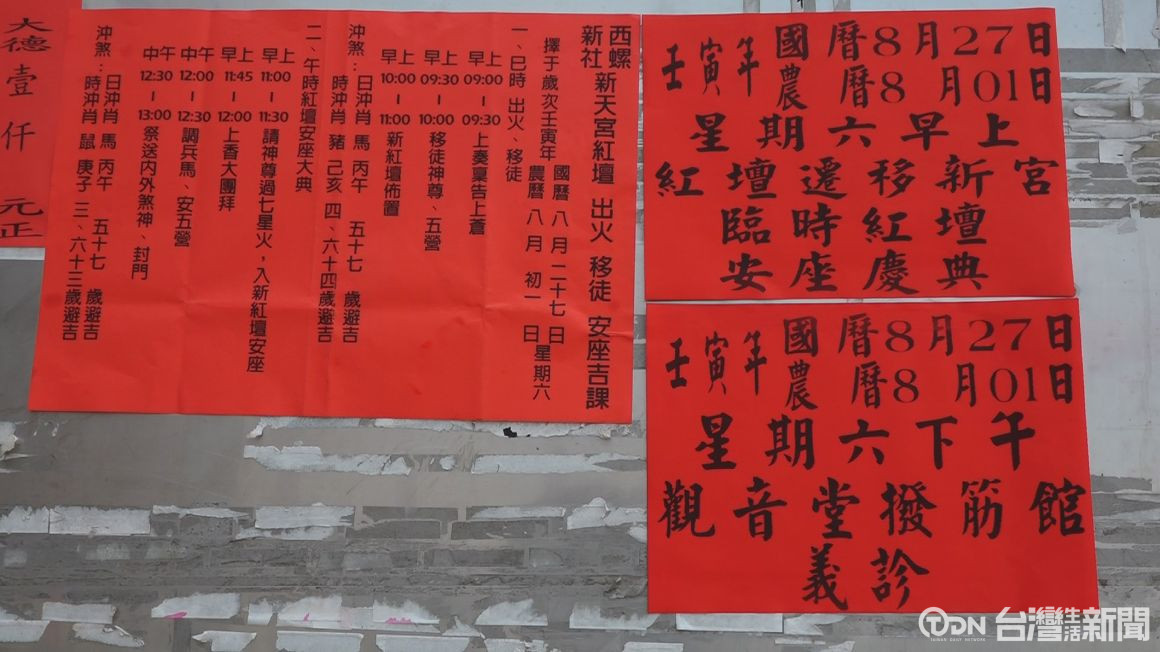 西螺
新社 新天宮紅壇 出火 移徒 安座吉課
擇于歲次壬寅年 國曆 八月 二十七 日 星期六
農曆 八月 初一 日
一、巳時 出火、移徒
早上 09:00－09:30 上奏稟告上蒼
早上 09:30－10:00 移徒神尊、五營
早上 10:00－11:00 新紅壇佈置
沖煞：日沖肖 馬 丙午 五十七 歲避吉
時沖肖 豬 己亥 四、六十四歲避吉
二、午時紅壇安座大典
早上 11:00－11:30 請神尊過七星火，入新紅壇安座
早上 11:45－12:00 上香大團拜
中午 12:00－12:30 調兵馬、安五營
中午 12:30－13:00 祭送內外煞神、封門
沖煞：日沖肖 馬 丙午 五十七 歲避吉
時沖肖 鼠 庚子 三、六十三歲避吉
大德壹仟元正
壬寅年 國曆8月27日
農曆8月01日
星期六早上
紅壇遷移新宮
臨時紅壇
安座慶典
壬寅年 國曆8月27日
農曆8月01日
星期六下午
觀音堂撥筋館
義診
TDN 台灣生活新聞
TAIWAN DAILY NETWORK